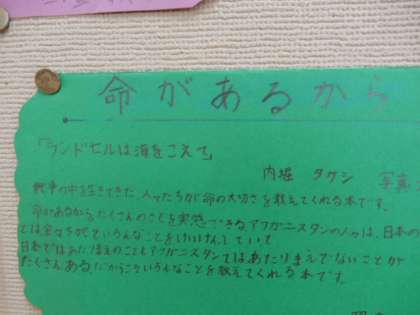 命があるから
「ランドセルは海をこえて」
内堀 タケシ 写真
戦争の中を生きてきた人々たちが命の大切さを教えてくれる本です。
命があるからたくさんのことを実感できるアフガニスタンの人々は、日本の
とは全くちがいいろんなことをけいけんしていて
日本ではあたりまえのこともアフガニスタンではあたりまえでないことが
たくさんあるだからこそいろんなことを教えてくれる本です。